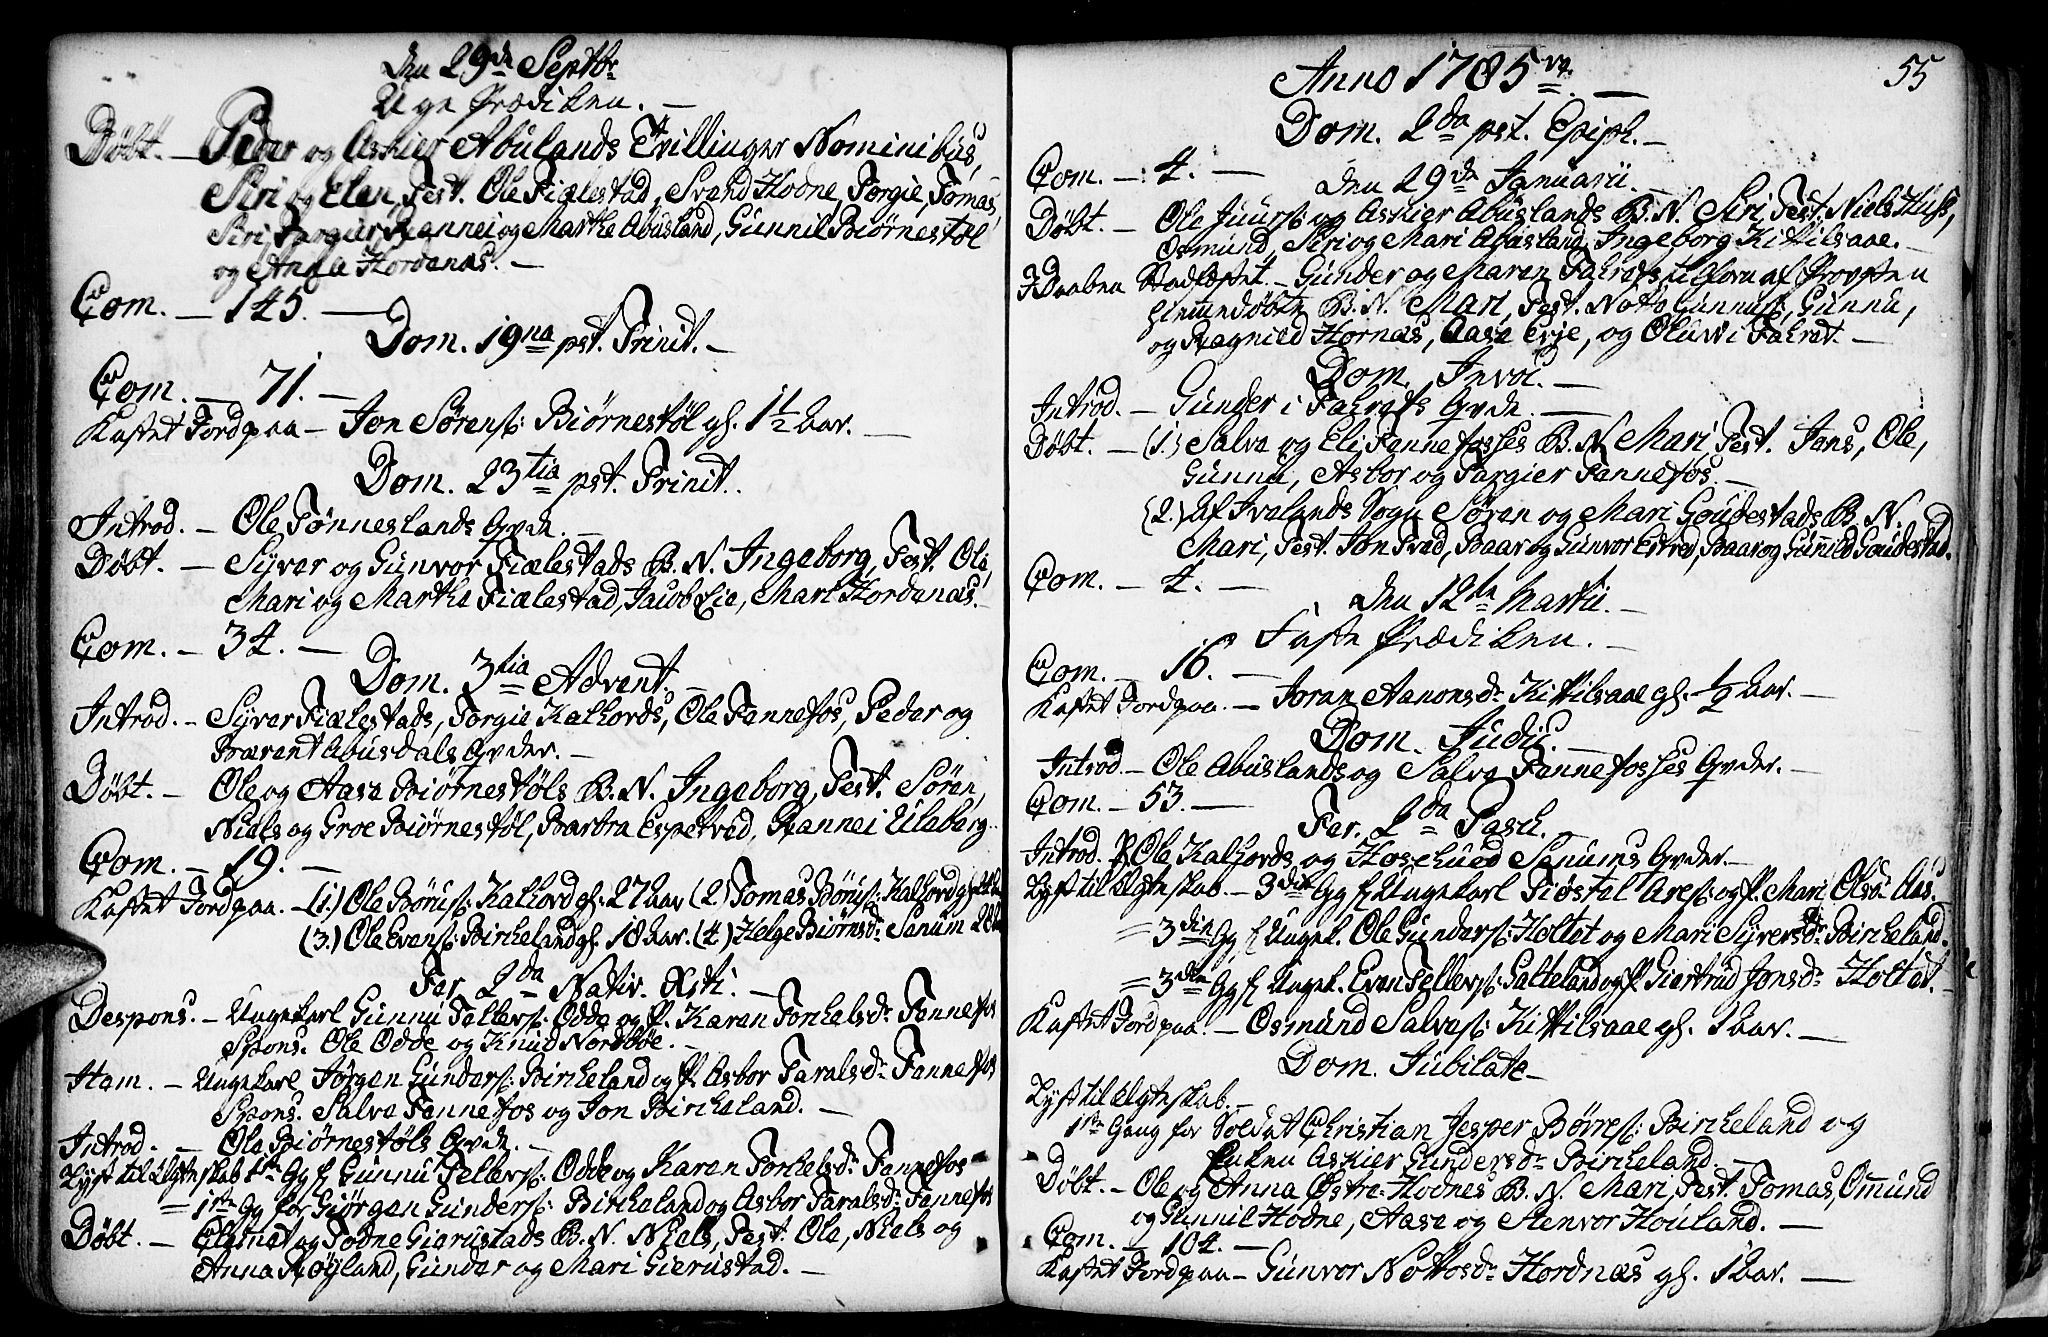 den 29de Septbr.
Uge Prædiken. —
Döbt. — Peder og Askier Abuslands Tvillinger Nominibus,
Siri og Elen, Test. Ole Fiælestad, Svend Hodne, Torgie, Tomas,
Siri, Torgier Rannei og Marthe Abusland, Gunnil Biørnestøl
og Anna Hordenæs. —
Com. — 145. —
Dom. 19na pst. Trinit. —
Com. — 71. —
Kastet Jord paa — Jon Sørens: Biørnestøl gl. 1½ Aar. —
Dom. 23tia pst. Trinit.
Introd. — Ole Tønneslands Qvde. —
Döbt. — Syver og Gunvor Fiælestads B. N. Ingeborg, Test. Ole,
Mari og Marthe Fiælestad, Jacob Lie, Mari Hordenæs. —
Com. — 34. —
Dom. 3tia Advent. —
Introd. — Syver Fiælestads, Torgie Kalhords, Ole Fannefos, Peder og
Bærent Abusdals Qvder. —
Döbt. — Ole og Aase Biørnestøls B. N. Ingeborg, Test. Søren,
Niels og Groe Biørnestøl, Barbra Espetved, Rannei Uleberg.
Com. — 19. —
Kastet Jord paa. — (1.) Ole Børus: Kalhord gl. 27 Aar (2) Tomas Børus: Kalhord gl.
(3.) Ole Evens: Bircheland gl. 18 Aar. (4.) Helge Biørnsdr. Senum
Fer. 2da Nativ. Xsti. —
Despons. — Ungekarl Gunnu Tellefs: Odde og P. Karen Torkelsdr. Fannefos
Spons. Ole Odde og Knud Nordbøe. —
Ham. — Ungekarl Jørgen Gunders: Bircheland og P. Asbor Taralsdr. Fannefos
Spons. Salve Fannefos og Jon Bircheland. —
Introd. — Ole Biørnestøls Qvde. —
Lyst til Egteskab 1ste Gg f Gunnu Tellefs: Odde og Karen Torkelsdr. Fannefos
= 1ste Gg for Giørgen Gunders: Bircheland og Asbor Taralsdr. Fannefos
Döbt. — Clemet og Todne Gierustads B. N. Niels, Test. Ole, Niels og
Anna Røyland, Gunder og Mari Gierustad. —
55
Anno 1785 —
Dom. 2da pst. Epiph. —
Com. — 4. —
den 29de Januarii. —
Döbt. — Ole Juurs: og Askier Abuslands B. N. Siri, Test. Niels Huss,
Osmund, Siri og Mari Abusland, Ingeborg Kittilsaae. —
J Daaben Stadfæstet. — Gunder og Maren Fahrets tilforn af Provsten
hiemmedöbte B. N. Mari, Test. Noto Gunnus, Gunnu,
og Ragnild Hornæs, Aase Evje, og Oluwi Fahret. —
Dom. Invoc. —
Introd. — Gunder i Fahrets Qvde. —
Döbt. — (1.) Salve og Eli Fannefosses B. N. Mari, Test. Jens, Ole,
Gunnu, Asbor og Torgier Fannefos. —
(2.) Af Ivelands Sogn Søren og Mari Goudestads B. N.
Mari, Test. Jon Tved, Baar og Gunvor Ertved, Baar og Gunnild Goudestad.
Com. — 4. —
den 12te Martii. —
Faste Prædiken. —
Com. — 16. —
Kastet Jord paa. — Joran Aanonsdr. Kittilsaae gl. ½ Aar. —
Dom. Judic. —
Introd. — Ole Abuslands og Salve Fannefosses Qvder. —
Com. — 53. —
Fer. 2da Pasch. —
Introd. Ole Kalhords og Hosehued Senums Qvder. —
Lyst til Egteskab. — 3die Gg f Ungekarl Tiøstel Ares: og P. Mari Olsdr. Aus. —
= 3die Gg f Ungek. Ole Gunders: Holtet og Mari Syversdr. Bircheland.
= 3die Gg f Ungek. Even Tellefs: Satteland og P. Giertrud Jonsdr. Holtet. —
Kastet Jord paa. — Osmund Salves: Kittilsaae gl. 1 Aar. —
Dom. Jubilate —
Lyst til Egteskab. —
1ste Gang for Soldat Christian Jesper Børres: Bircheland og
Enken Askier Gundersdr. Bircheland. —
Döbt. — Ole og Anna Østre-Hodnes B. N. Mari, Test. Tomas, Omund
og Gunnil Hodne, Aase og Stenvor Houland. —
Com. — 104. —
Kastet Jord paa — Gunvor Notosdr. Hordnæs gl. 1 Aar. —